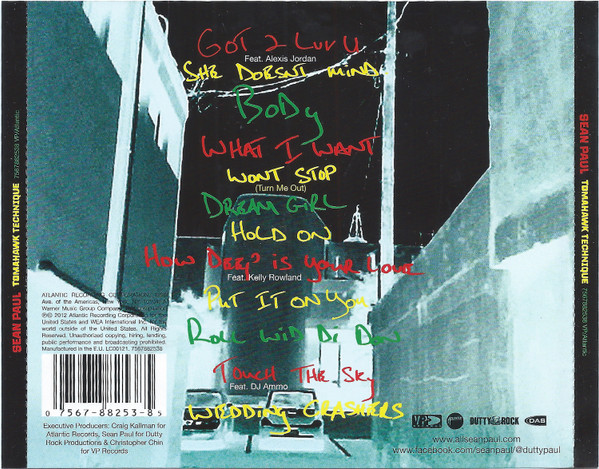 GOT 2 LUV U
Feat. Alexis Jordan
SHE DOESNT MIND
BODY
WHAT I WANT
WONT STOP
(Turn Me Out)
DREAM GIRL
HOLD ON
HOW DEEP IS YOUR LOVE
Feat. Kelly Rowland
PUT IT ON YOU
ROLL WID DI DON
TOUCH THE SKY
Feat. DJ Ammo
WEDDING CRASHERS
SEAN PAUL TOMAHAWK TECHNIQUE 7567882538 VP/Atlantic
SEAN PAUL TOMAHAWK TECHNIQUE 7567882538 VP/Atlantic
ATLANTIC RECORDING CORPORATION,
Ave. of the Americas, New York,
Warner Music Group Company.
℗© 2012 Atlantic Recording Corporation for the
world outside of the United States. All Rights
Reserved. Unauthorized copying, hiring, lending,
public performance and broadcasting prohibited.
Manufactured in the E.U. LC00121. 7567882538
0 7567-88253-8 5
Executive Producers: Craig Kallman for
Atlantic Records, Sean Paul for Dutty
Rock Productions & Christopher Chin
for VP Records
VP
DUTTY ROCK
DAB
www.allseanpaul.com
www.facebook.com/seanpaul/@duttypaul